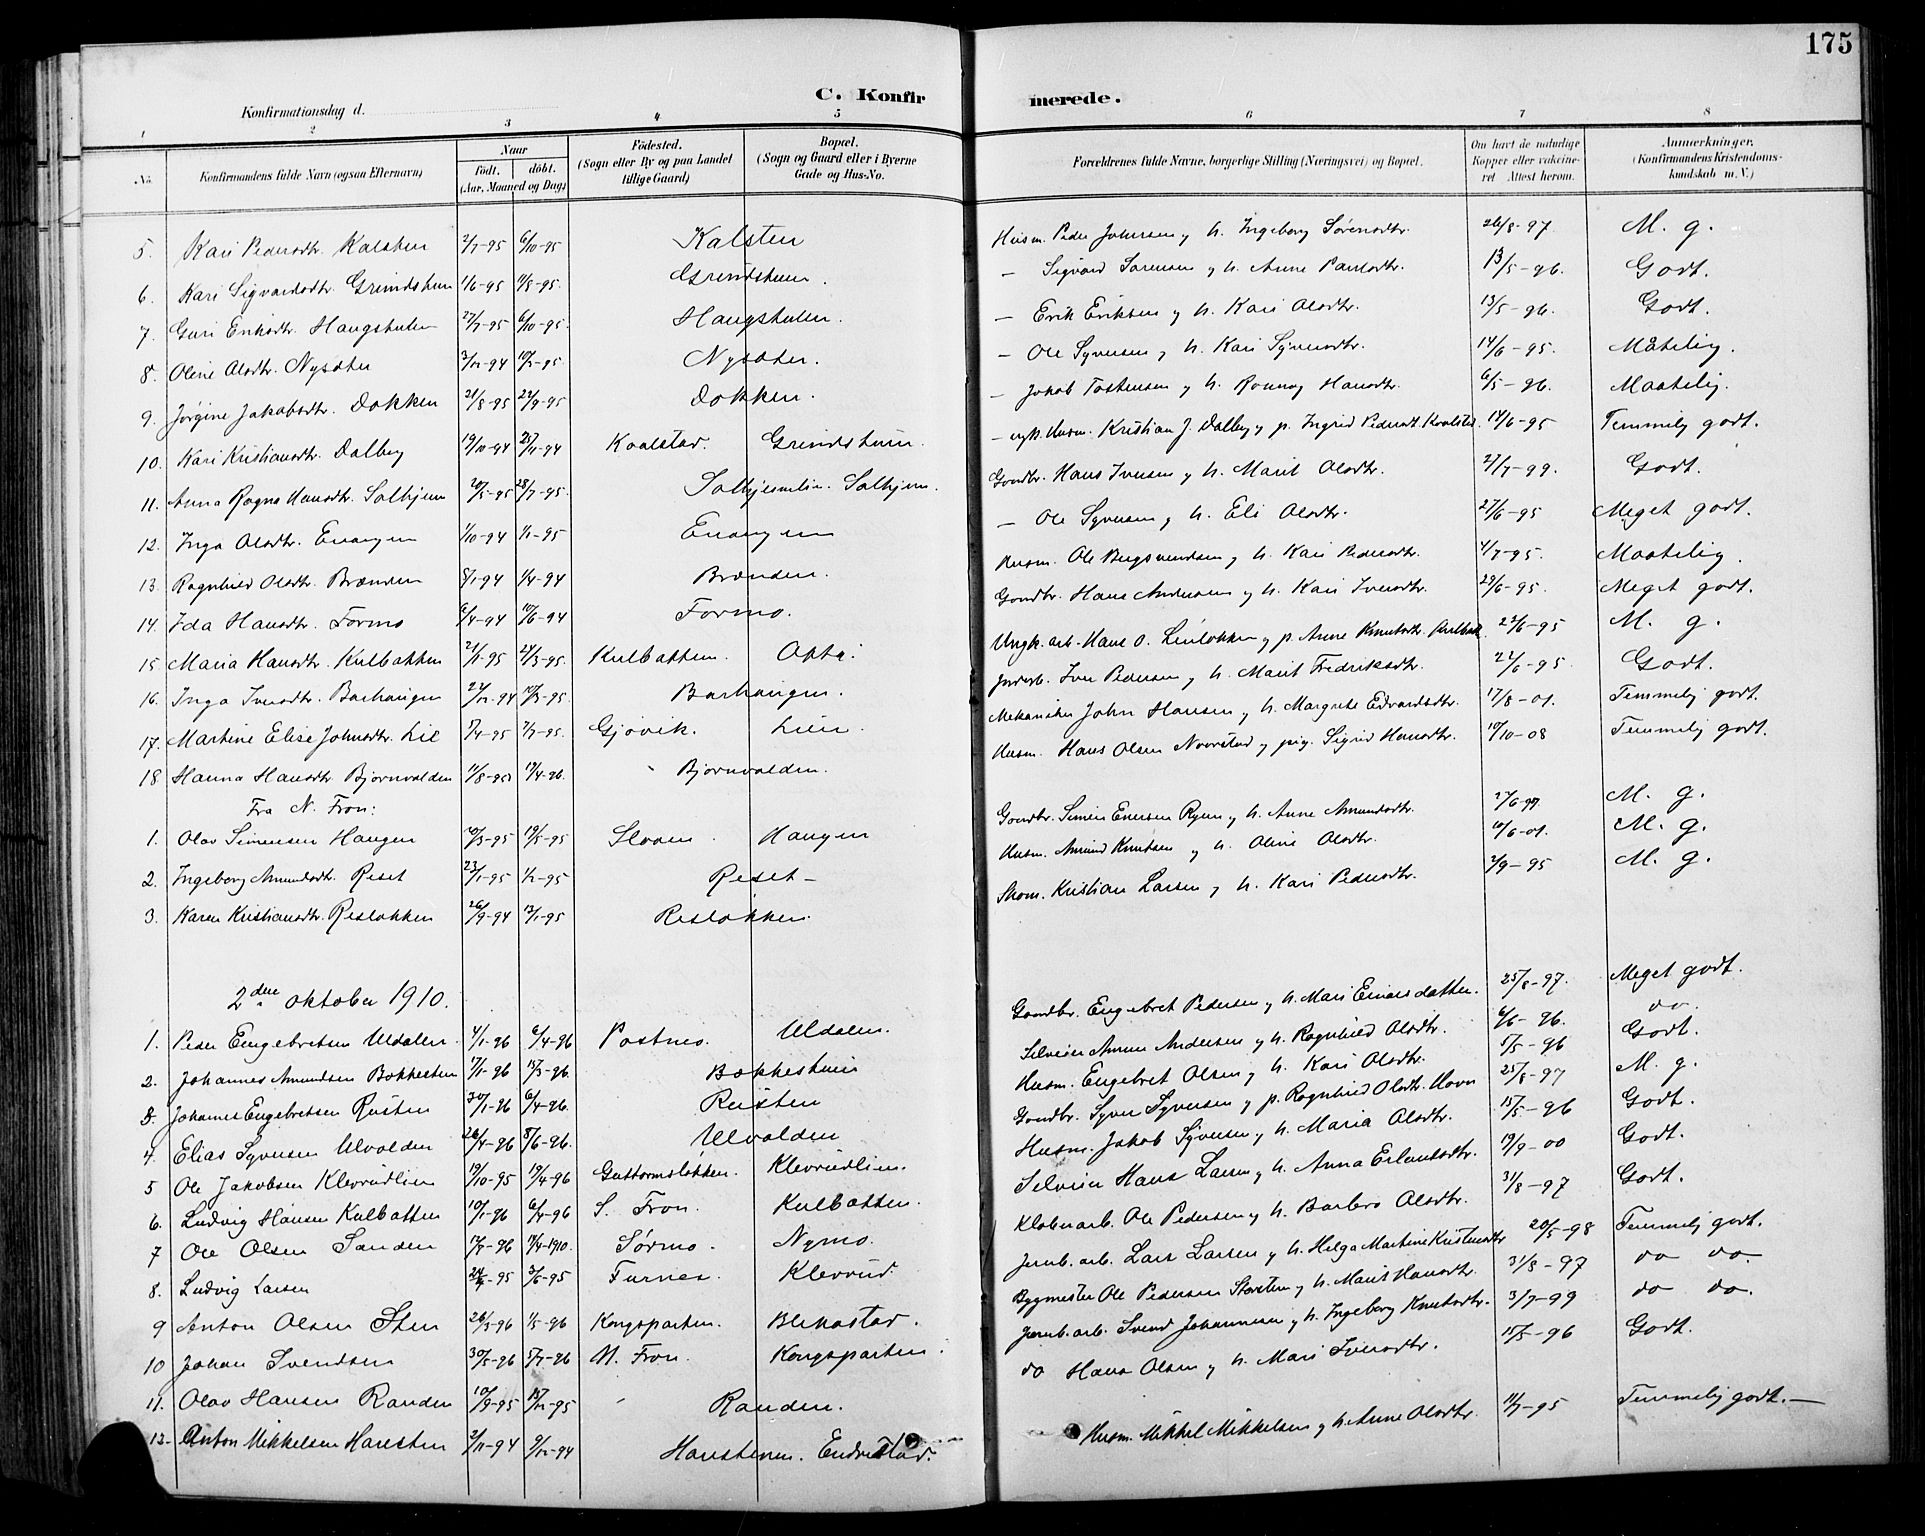 175
C. Konfirmerede.
Konfirmationsdag d.
1 2 3 4 5 6 7 8
No. Konfirmandens fulde Navn (ogsaa Efternavn) Naar født. døbt. (Aar, Maaned og Dag) Fødested. (Sogn eller By og paa Landet tillige Gaard) Bopæl. (Sogn og Gaard eller i Byerne Gade og Hus-No. Forældrenes fulde Navne, borgerlige Stilling (Næringsvei) og Bopæl. Om havt de naturlige Kopper eller vakcineret Attest herom. Anmærkninger. (Konfirmandens Kristendomskundskab m. V.)
5. Kari Pedersdtr. Kalsten 2/7-95 6/10-95 Kalsten Husm. Peder Johnsen og h. Ingeborg Sørensdtr. 26/8-97. M. g.
6. Kari Sigvardsdtr. Grindstuen 1/6-95 11/8-95. Grindstuen. — Sigvard Sorensen og h. Anne Paulsdtr. 13/5-96. Godt.
7. Guri Eriksdtr. Haugstulen 27/7-95 6/10-95. Haugstulen. — Erik Eriksen og h. Kari Olsdtr. 13/5-96. Godt.
8. Oline Olsdtr. Nysæter 3/12-94 10/2-95. Nysæter. — Ole Syversen og h. Kari Syversdtr. 14/6-95. Måtelig.
9. Jørgine Jakobsdtr. Dokken 21/8-95 22/9-95 Dokken. — Jakob Tostensen og h. Rønnog Hansdtr. 6/5-96. Maatelig.
10. Kari Kristiansdtr. Dalbey 19/10-94 25/11-94 Kaalstad. Grindstuen. — Husm. Kristian J. Dalbey og p. Ingrid Pedersdt. Kvalstad 14/6-95 Temmelig godt.
11. Anna Ragna Hansdtr. Solhjem 20/5-95 28/7-95. Solhjem. Gaardbr. Hans Iversen og h. Marit Olsdtr. 27/7-99. Godt.
12. Inga Olsdtr. Enangen 1/10-94 1/1-95 Enangen — Ole Syversen og h. Eli Olsdtr. 27/6-95 Meget godt.
13. Ragnhild Olsdtr. Brænden 8/1-94 1/4-94 Brænden. Husm. Ole Bergsvendsen og h. Kari Pedersdtr. 4/7-95. Maatelig.
14. Ida Hansdtr. Formo 6/4-94 10/6-94 Formo. Gaardbr. Hans Andersen og h. Kari Iversdtr. 29/6-95. Meget godt.
15 Maria Hansdtr. Kulbakken 2/1-95 24/3-95. Kulbakken. Otta. Ungk. arb. Hans O. Linløkken og p. Anne Knutsdtr. 23/6-95 M. g.
16. Inga Iversdtr. Barhaugen 22/12-94 10/3-95. Barhaugen. Jordarb. Iver Pedersen og h. Marit Fredriksdtr. 22/6-95. Godt.
17. Martine Elise Johnsdtr. Lie 7/4-95 7/7-95. Gjøvik. Lien. Mekaniker John Hansen og h. Margrete Edvardsdtr. 17/8-01. Temmelig godt.
18 Hanna Hansdtr. Bjornvolden 11/8-95 17/4-96. Bjornvolden. Husm. Hans Olsen Norstad og pig. Sigrid Hansdtr. 10/10-08 Temmelig godt.
Fra N. Fron:
1. Olav Simensen Haugen 10/3-95 19/5-95 Sloaen. Haugen Gaardbr. Simen Enersen Ryen og h. Anne Amundsdtr. 27/6-99 M. g.
2. Ingeborg Amundsdt. Reset 23/1-95 1/2-95 Reset — Husm. Amund Knutsen og h. Oline Olsdtr. 10/6-01. M. g.
3. Karen Kristiansdtr. Resløkken 26/9-94 13/1-95 Resløkken. Skom. Kristian Larsen og h. Kari Pedersdtr. 2/9-95 M. g.
2den oktober 1910.
1. Peder Engebretsen Uldalen. 4/1-96 6/4-96 Postmo. Uldalen. Gaardbr. Engebret Pedersen og h. Mari Einarsdatter. 25/8-97. Meget godt.
2. Johannes Amundsen Bækkesten 17/1-96 15/3-96. Bækkestuen Selveier Amun Andersen og h. Ragnhild Olsdtr. 6/6-96. do.
3. Johannes Engebretsen Rusten 30/1-96 6/4-96. Rusten Husm. Engebret Olsen og h. Kari Olsdtr. 5/5-96 Godt.
4. Elias Syversen Ulvolden 26/4-96 8/6-96. Ulvolden Gaardbr. Syver Syversen og p. Ragnhild Olsdtr. Hovn 25/8-97 M. g.
5 Ole Jakobsen Klevrudlien 19/10-95 19/4-96 Guttormsløkken. Klevrudlien. Husm. Jakob Syversen og h. Maria Olsdtr. 15/5-96 Godt.
6. Ludvig Hansen Kulbakken 10/1-96 6/4-96 S. Fron. Kulbakken. Selveier Hans Larsen og h. Anna Erlandsdtr. 19/9-00 Godt.
7 Ole Olsen Sanden 17/7-96 17/4-1910. Sørmo. Nymo. Kloberarb. Ole Pedersen og h. Barbro Olsdtr. 31/8-97 Godt.
8. Ludvig Larsen 24/4-95 3/6-95 Furnes. Klevrud. Jernb. arb. Lars Larsen og h. Helga Martine Kristensdtr 20/5-98 Temmelig godt.
9 Anton Olsen Sten 26/3-96 1/5-96 Kongsparten. Blekastad. Bygmester Ole Pedersen Storsten og h. Marit Hansdtr. 31/8-97 do do.
10 Johan Svendsen 30/5-96 5/7-96 N. Fron. Kongsparten. Jernb. arb. Svend Johannesen og h. Ingeborg Knutsdtr. 3/7-99 do do.
11. Olav Hansen Randen 10/9-95 15/12-95 Randen. do Hans Olsen og h. Mari Iversdtr. 15/5-96 Godt.
12. Anton Mikkelsen Haresten 2/11-94 9/12-94 Harestenen. Endrestad. Husm. Mikkel Mikkelsen og h. Anne Olsdtr. 11/7-95 Temmelig godt.—